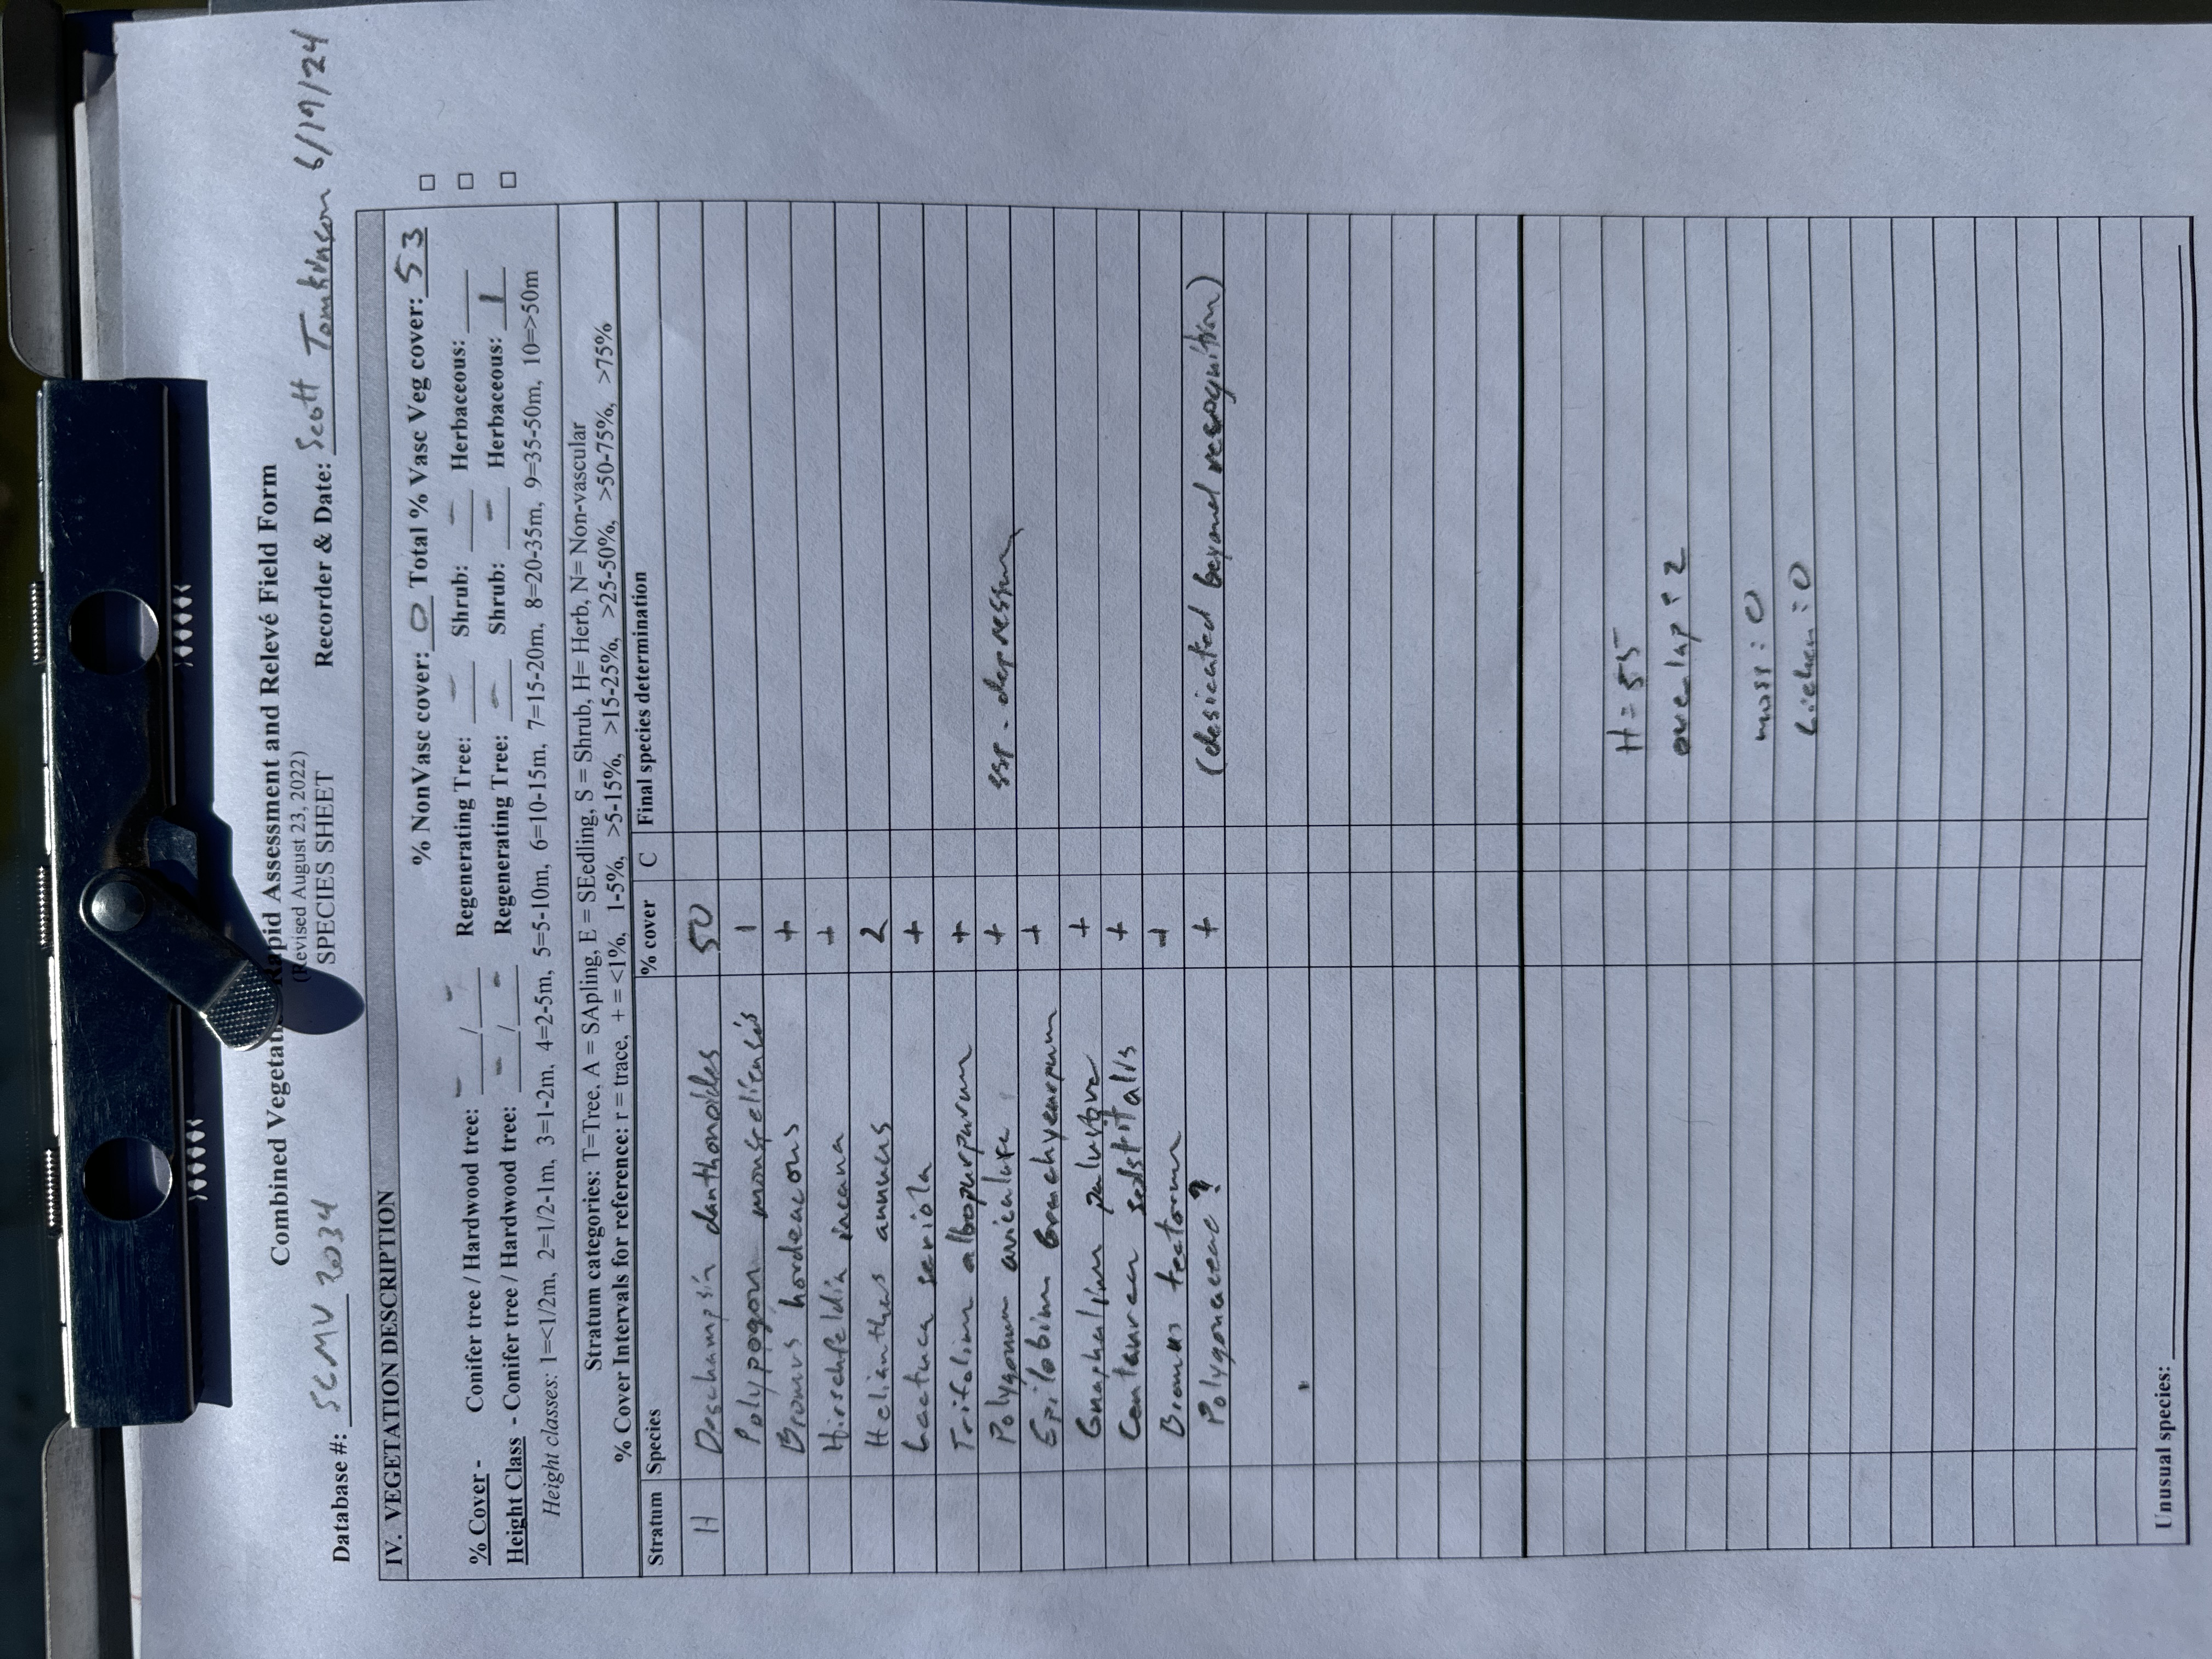 Combined Vegetation Rapid Assessment and Relevé Field Form
(Revised August 23, 2022)
SPECIES SHEET
Database #: SCMV 2034 Recorder & Date: Scott Tomkinson 6/19/24
IV. VEGETATION DESCRIPTION
% NonVasc cover: 0 Total % Vasc Veg cover: 53
% Cover - Conifer tree / Hardwood tree: - / - Regenerating Tree: - Shrub: - Herbaceous:
Height Class - Conifer tree / Hardwood tree: - / - Regenerating Tree: - Shrub: - Herbaceous: 1
Height classes: 1=<1/2m, 2=1/2-1m, 3=1-2m, 4=2-5m, 5=5-10m, 6=10-15m, 7=15-20m, 8=20-35m, 9=35-50m, 10=>50m
Stratum categories: T=Tree, A = SApling, E = SEedling, S = Shrub, H= Herb, N= Non-vascular
% Cover Intervals for reference: r = trace, + = <1%, 1-5%, >5-15%, >15-25%, >25-50%, >50-75%, >75%
Stratum Species % cover C Final species determination
H Deschampsia danthonoides 50
Polypogon monspeliensis 1
Bromus hordeaceus +
Hirschfeldia incana +
Helianthus annuus 2
Lactuca seriola +
Trifolium albopurpurum +
Polygonum aviculare + ssp. depressum
Epilobium brachycarpum +
Gnaphalium palustre +
Centaurea solstitalis +
Bromus tectorum +
Polygonaceae? + (desicated beyond recognition)
H = 55
overlap: 2
moss: 0
Lichen: 0
Unusual species: